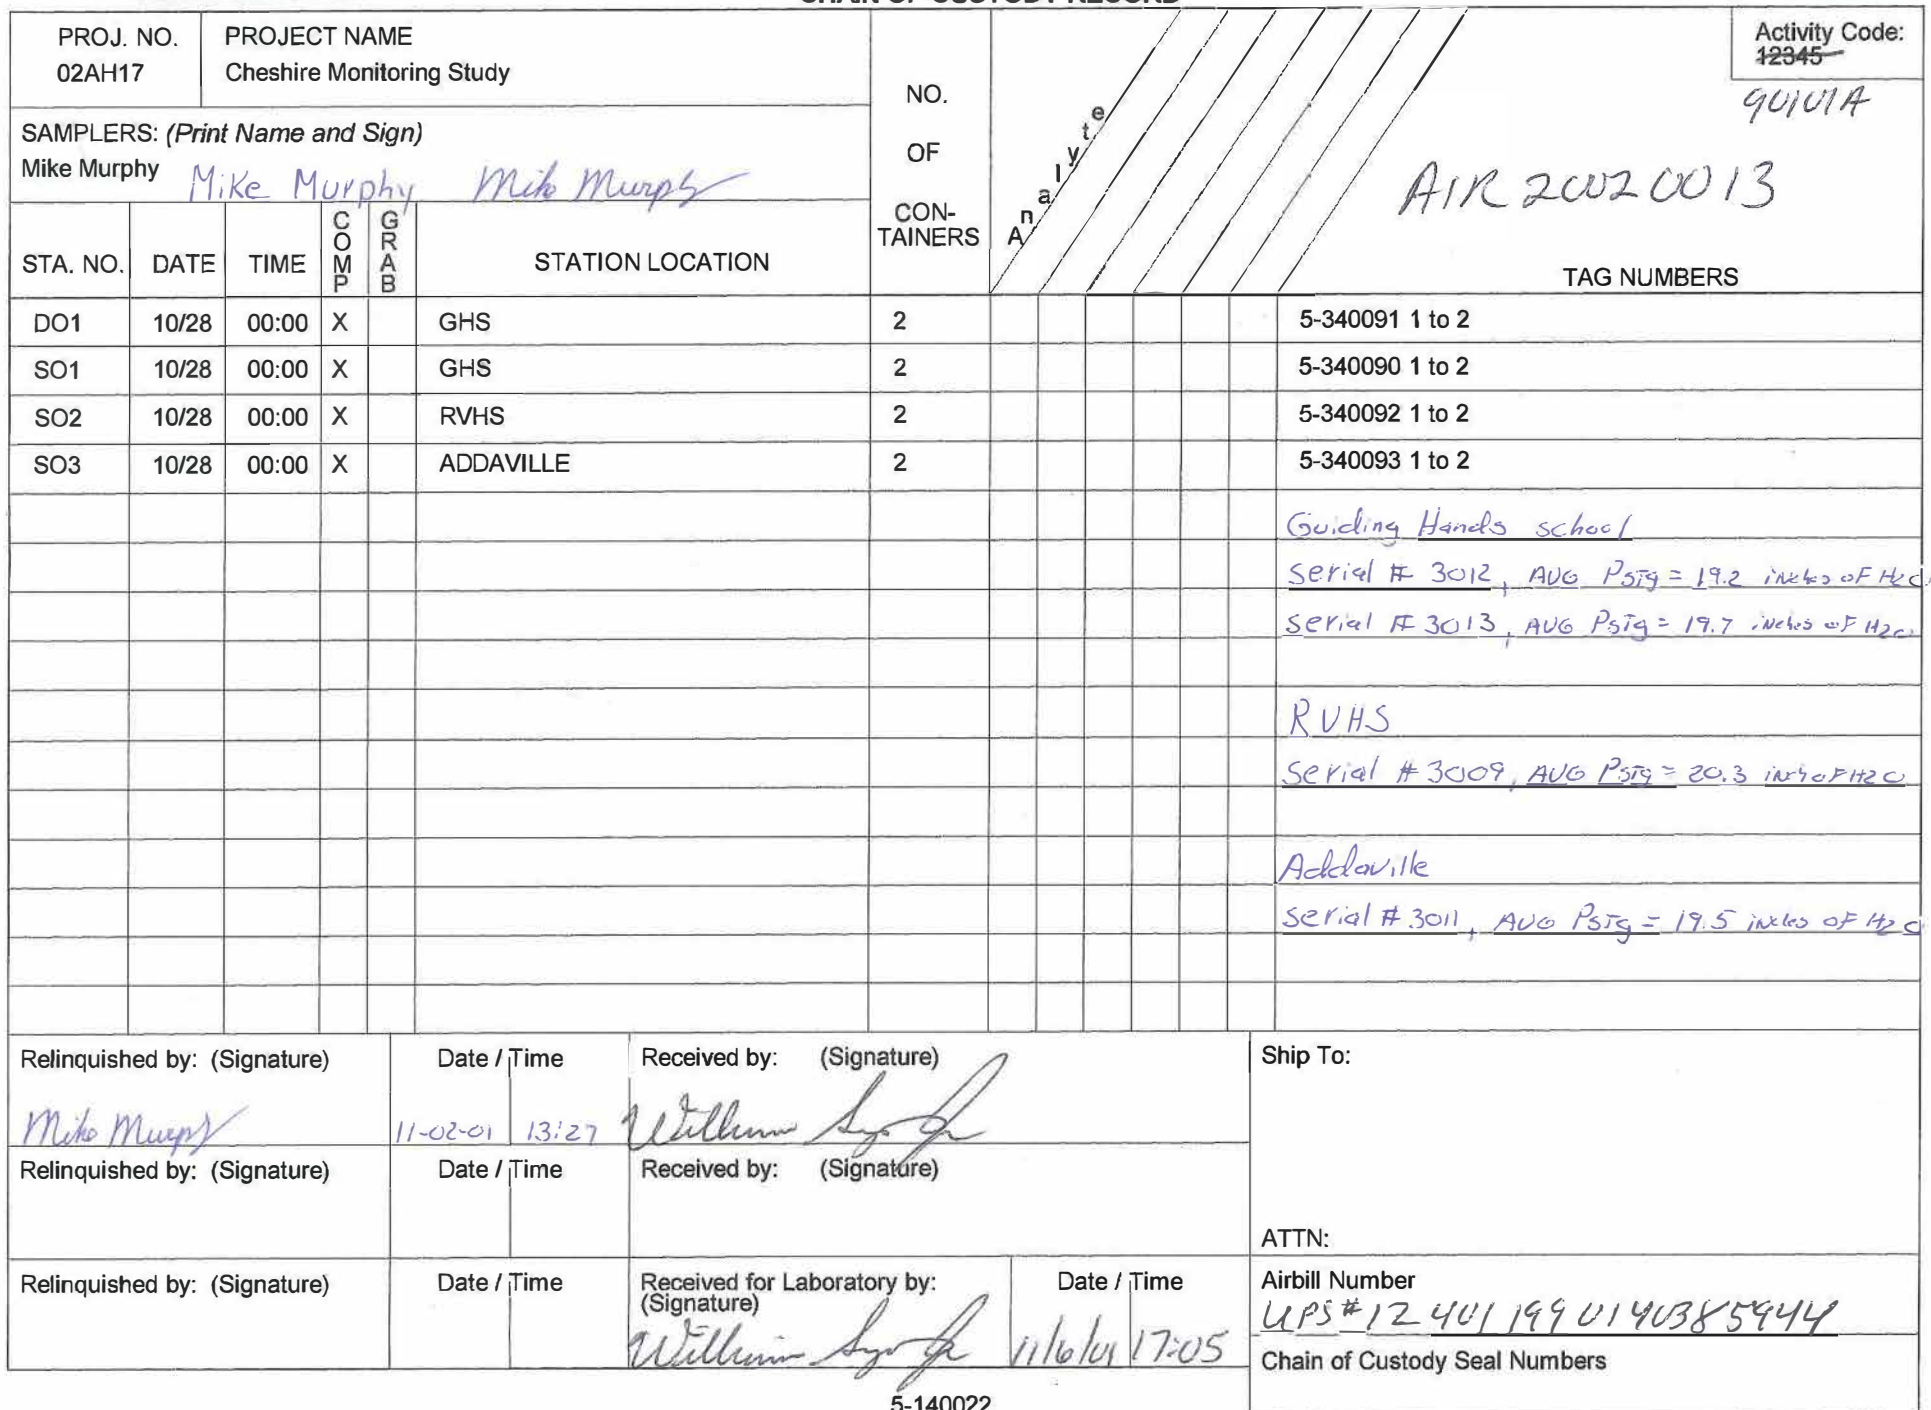 CHAIN OF CUSTODY RECORD
PROJ. NO.
02AH17
PROJECT NAME
Cheshire Monitoring Study
Activity Code:
12345
90101A
SAMPLERS: (Print Name and Sign)
Mike Murphy Mike Murphy Mike Murphy
NO.
OF
CON-
TAINERS
Analyte
AIR 20020013
STA. NO. DATE TIME COMP GRAB STATION LOCATION TAG NUMBERS
DO1 10/28 00:00 X GHS 2 5-340091 1 to 2
SO1 10/28 00:00 X GHS 2 5-340090 1 to 2
SO2 10/28 00:00 X RVHS 2 5-340092 1 to 2
SO3 10/28 00:00 X ADDAVILLE 2 5-340093 1 to 2
Guiding Hands school
Serial # 3012, AVG Psig = 19.2 inches OF H2O
Serial # 3013, AVG Psig = 19.7 inches OF H2O
RVHS
Serial # 3009, AVG Psig = 20.3 OF H2O
Addaville
Serial # 3011, AVG Psig = 19.5 inches OF H2O
Relinquished by: (Signature) Date / Time Received by: (Signature)
Mike Murphy 11-02-01 13:27 William
Ship To:
Relinquished by: (Signature) Date / Time Received by: (Signature)
ATTN:
Relinquished by: (Signature) Date / Time Received for Laboratory by:
(Signature)
Date / Time
William 11/6/01 17:05
Airbill Number
UPS# 12 401 199 01 4038 5944
Chain of Custody Seal Numbers
5-140022